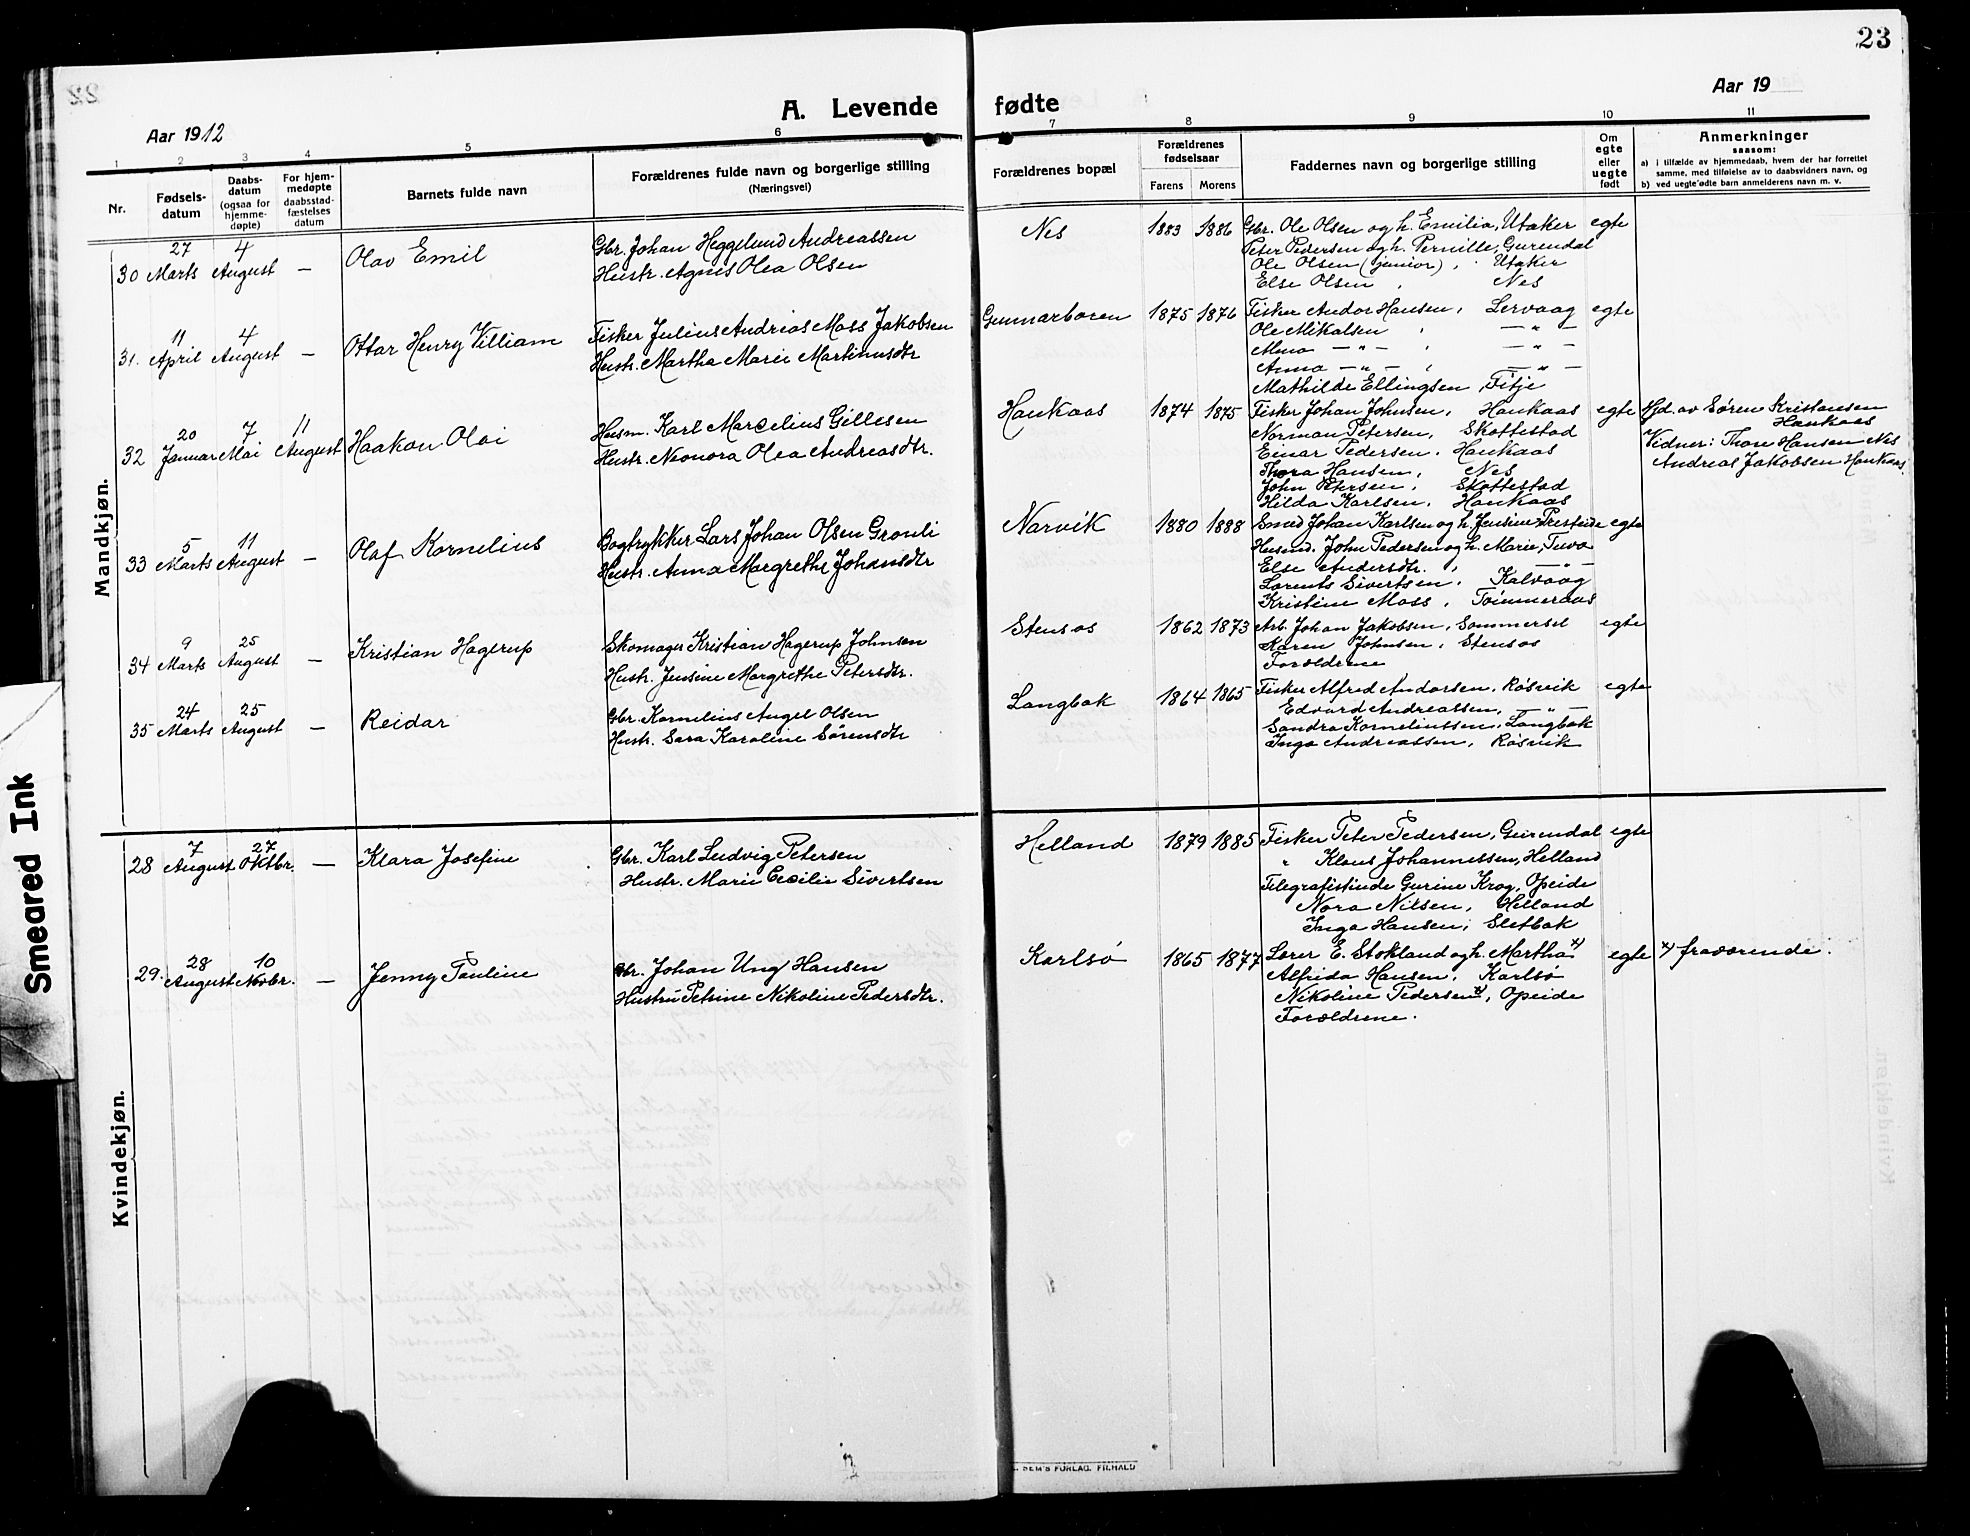 23
Aar 1912
A. Levende fødte
Aar 19
1 2 3 4 5 6 7 8 9 10 11
Nr.
Fødsels-
datum
Daabs-
datum
(ogsaa for
hjemme-
døpte)
For hjem-
medøpte
daabsstad-
fæstelses
datum
Barnets fulde navn
Forældrenes fulde navn og borgerlige stilling
(Næringsvei)
Forældrenes bopæl
Forældrenes
fødselsaar
Farens Morens
Faddernes navn og borgerlige stilling
Om
egte
eller
uegte
født
Anmerkninger
saasom:
a) i tilfælde av hjemmedaab, hvem der har forrettet
samme, med tilføielse av to daabsvidners navn, og
b) ved uegte fødte barn anmelderens navn m. v.
Mandkjøn.
30 27 Marts 4 August —
Olav Emil
Gbr. Johan Heggelund Andreassen
Hustr. Agnes Olea Olsen
Nes 1883 1886
Gbr. Ole Olsen og h. Emilia, Utaker egte
Peter Pedersen og h. Pernille, Gurendal
Ole Olsen (junior), Utaker
Else Olsen, Nes
31. 11 April 4 August —
Ottar Henry Villiam
Fisker Julius Andreas Moss Jakobsen
Hustr. Martha Marie Martinusdtr
Gunnarboren 1875 1876
Fisker Andor Hansen, Lervaag egte
Ole Mikalsen, — " —
— " —, — " —
Anna — " —, — " —
Mathilde Ellingsen, Fitje
32 20 Januar 7 Mai 11 August
Haakon Olai
Husm. Karl Marcelius Gillesen
Hustr. Neonora Olea Andreasdtr.
Haukaas 1874 1875
Fisker Johan Johnsen, Haukaas egte
Norman Petersen, Skottestad
Einar Pedersen, Haukaas
Thora Hansen, Nes
John Petersen, Skottestad
Hilda Karlsen, Haukaas
Hjd. av Søren Kristensen
Haukaas
Vidner: Thore Hansen Nes
Andreas Jakobsen Haukaas
33 5 Marts 11 August —
Olaf Kornelius
Bogtrykker Lars Johan Olsen Grønli
Hustr. Anna Margrethe Johansdtr
Narvik 1880 1888
Smed Johan Karlsen og h. Jensine, Presteide egte
Husmd. John Pedersen og h. Marie, Tuva
Else Andersdtr., — " —
Lorents Sivertsen, Kalvaag
Kristine Moss, Tømmeraas
34 9 Marts 25 August —
Kristian Hagerup
Skomager Kristian Hagerup Johnsen
Hustr. Jensine Margrethe Petersdtr.
Stensos 1862 1873
Arb. Johan Jakobsen, Sommersel egte
Karen Johnsen, Stensos
Forældrene
35 24 Marts 25 August —
Reidar
Gbr. Kornelius Angel Olsen
Hustr. Sara Karoline Sørensdtr
Langbak 1864 1865
Fisker Alfred Andorsen, Røsvik egte
Edvard Andreassen, — " —
Sandra Korneliussen, Langbak
Inga Andreassen, Røsvik
Kvindekjøn.
28 7 August 27 Oktbr. —
Klara Josefine
Gbr. Karl Ludvig Petersen
Hustr. Marie Cecilie Sivertsen
Helland 1879 1885
Fisker Peter Pedersen, Gurendal egte
" Klaus Johannessen, Helland
Telegrafistinde Gurine Krog, Opeide
Nora Nilsen, Helland
Inga Hansen, Sletbak
29. 28 August 10 Novbr. —
Jenny Pauline
Gbr. Johan Ung Hansen
Hustru Petrine Nikoline Pedersdtr.
Karlsø 1865 1877
Lærer E. Stokland og h. Martha x) egte
Alfrida Hansen, Karlsø
Nikoline Pedersen x), Opeide
Forældrene.
x) fraværende.
Smeared Ink
SEM'S FORLAG, FR.HALD